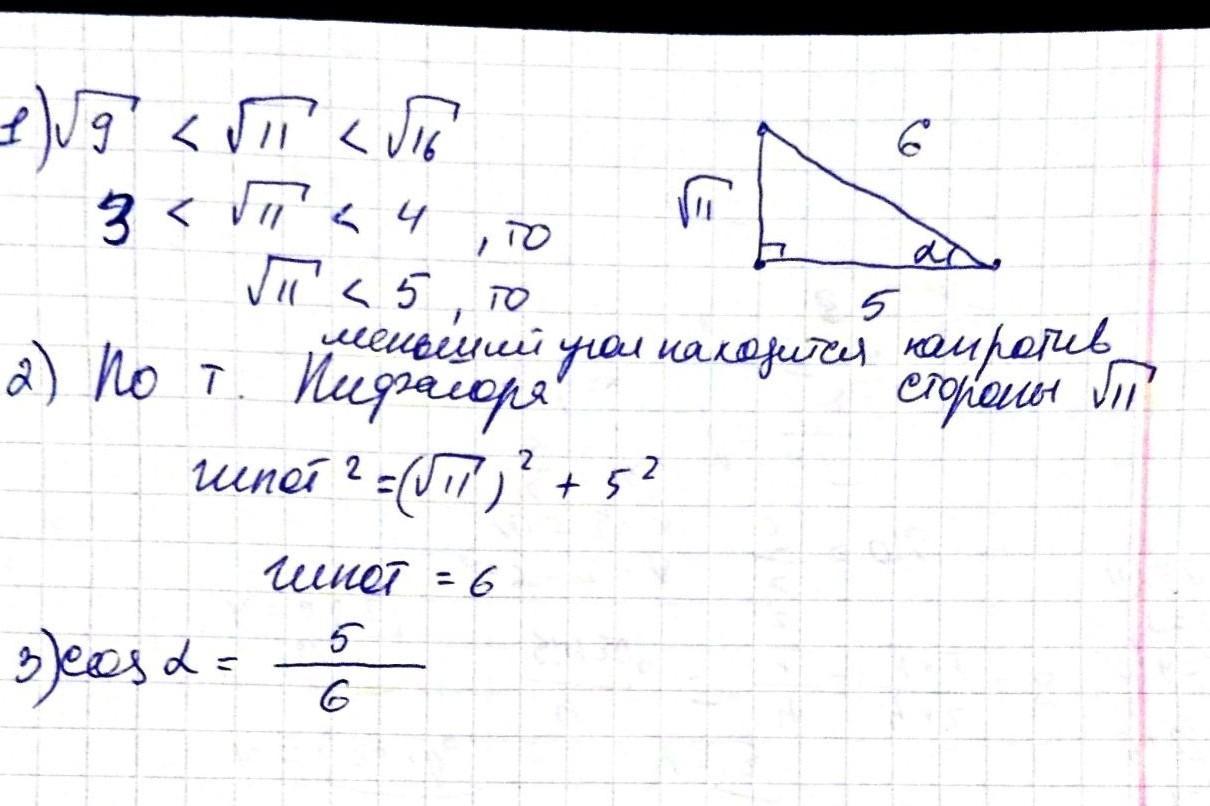 1) √9 < √11 < √16
3 < √11 < 4 , то
√11 < 5 , то
меньший угол находится напротив
стороны √11
2) По т. Пифагора
гипот² = (√11)² + 5²
гипот = 6
3) cos α = 5/6
6
√11
α
5